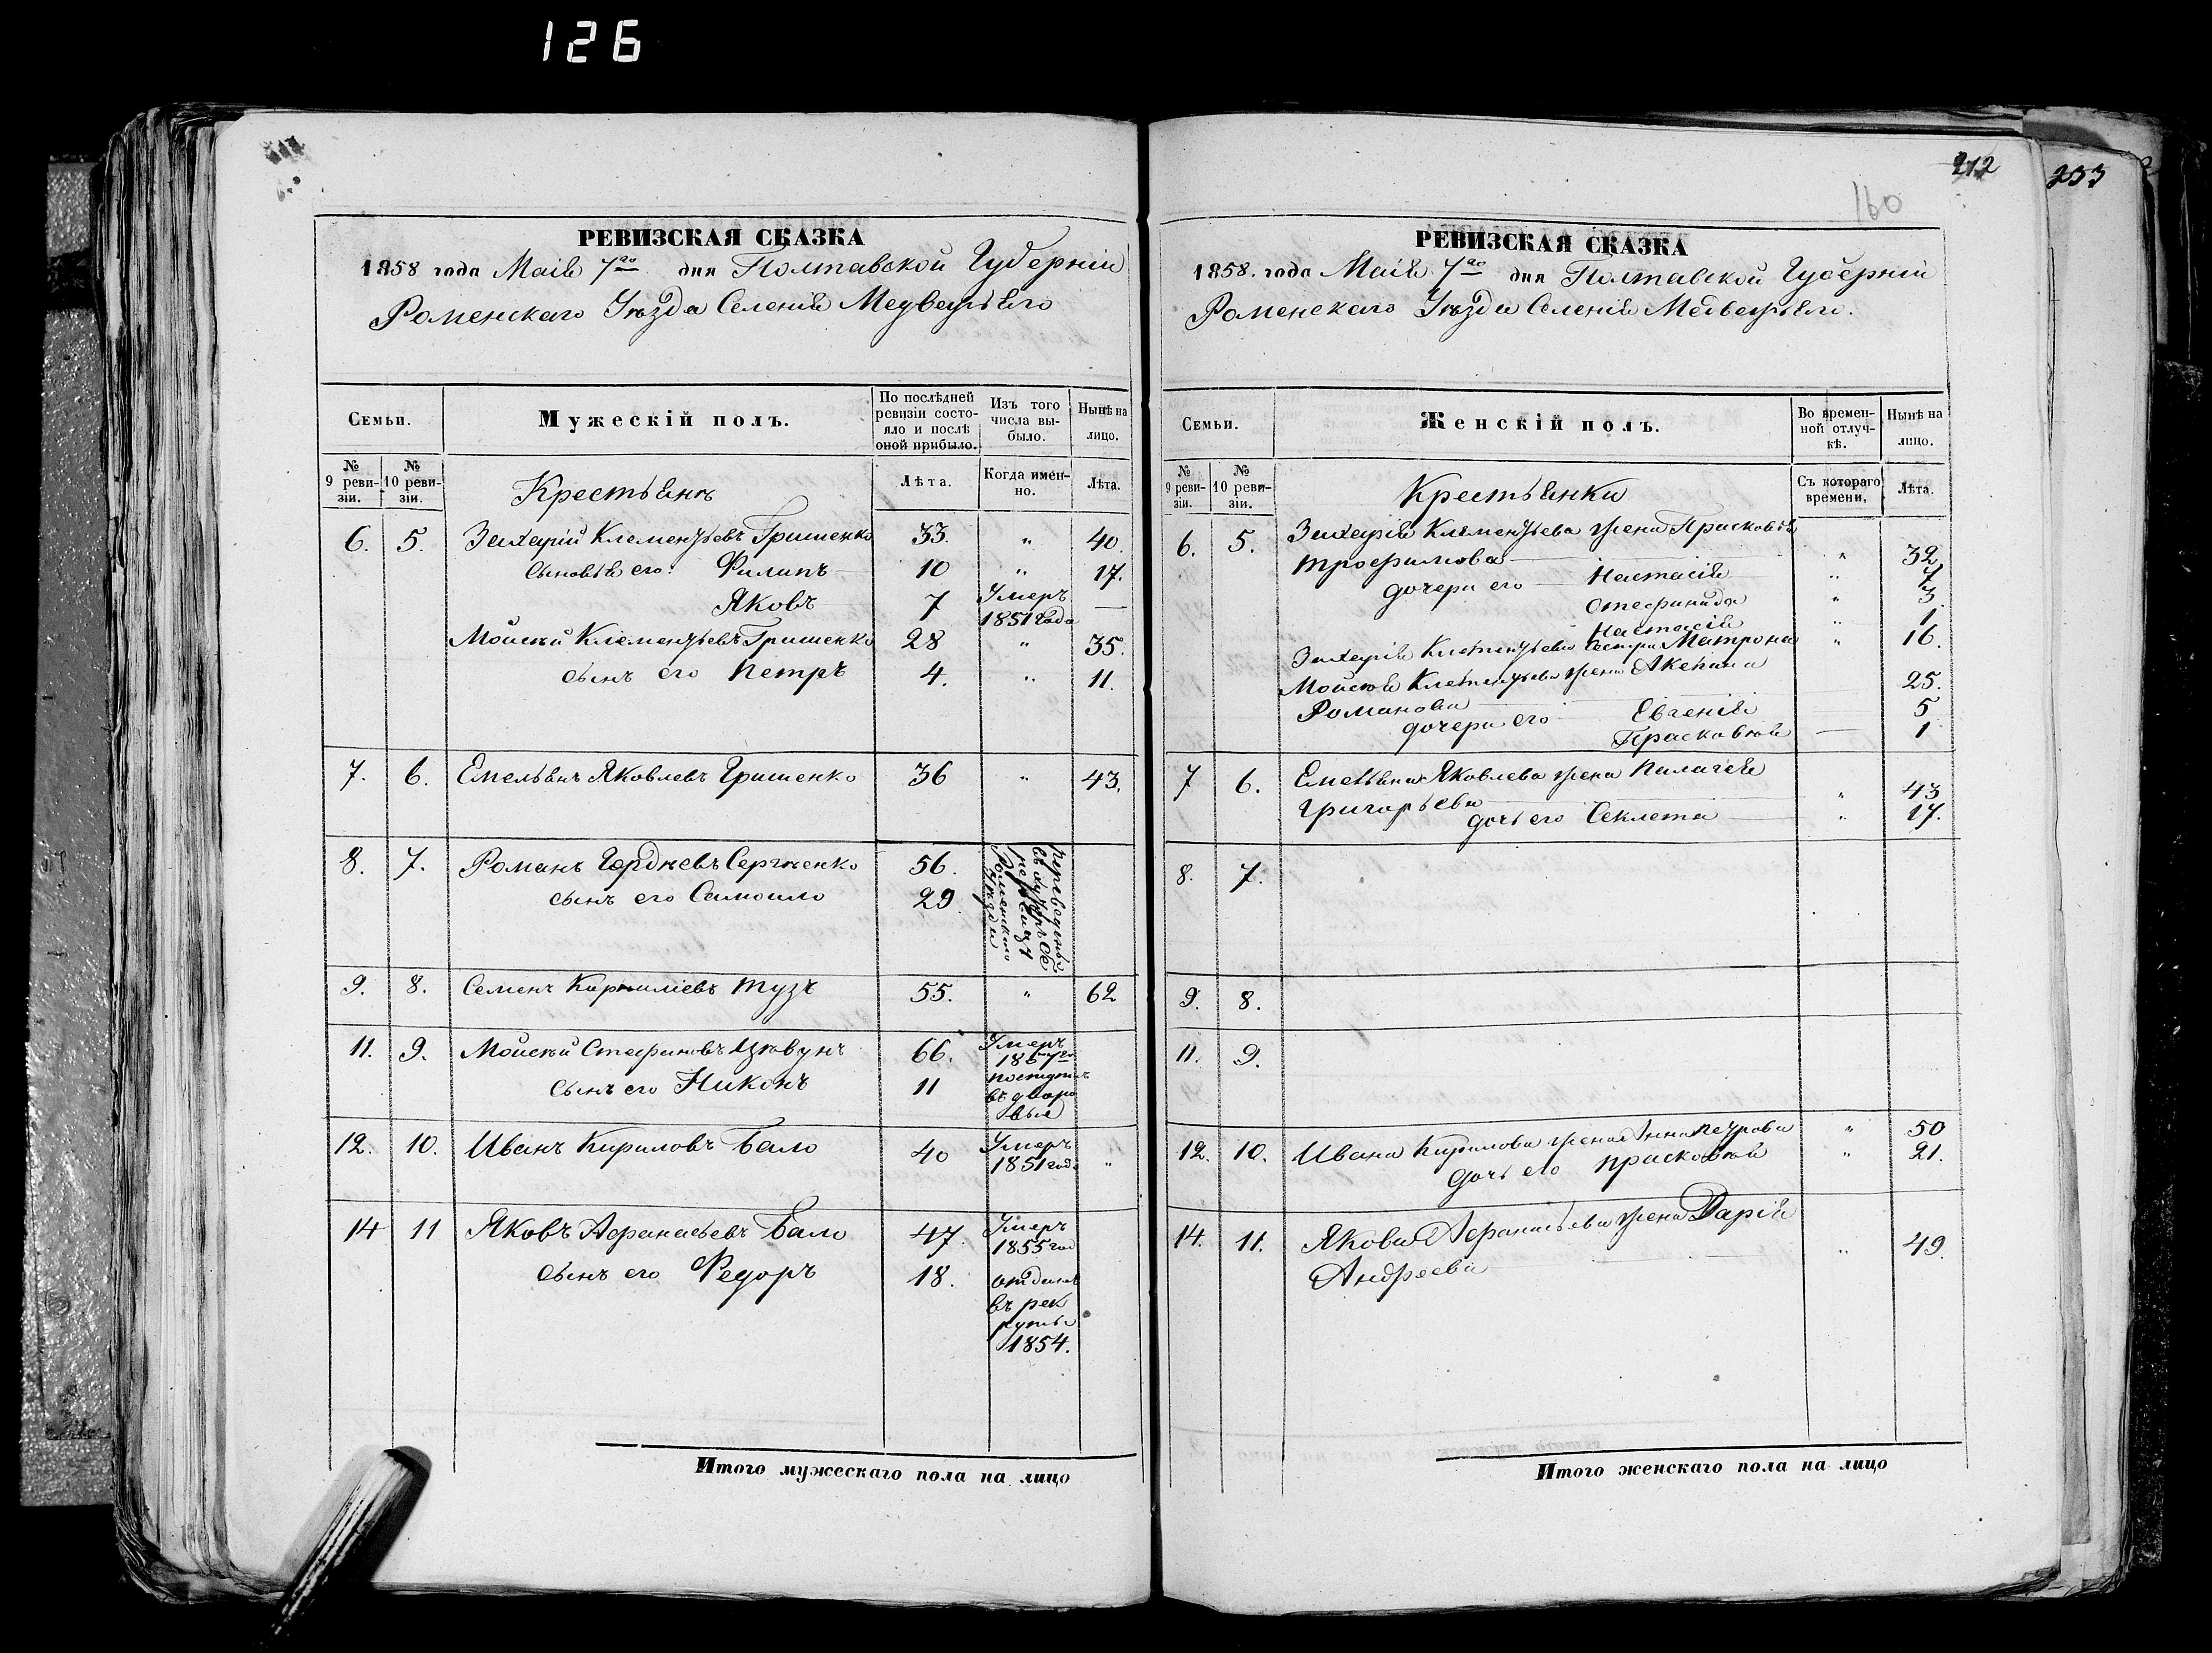 126
212
253
160
РЕВИЗСКАЯ СКАЗКА
1858 года Маія 7го дня Полтавской Губерніи
Роменскаго Уѣзда Селенія Медвежьяго
Семьи.
Мужескій полъ.
По послѣдней ревизіи состояло и послѣ оной прибыло.
Изъ того числа выбыло.
Нынѣ на лицо.
№ 9 ревизіи.
№ 10 ревизіи.
Крестьянъ
Лѣта.
Когда именно.
Лѣта.
6. 5. Захарій Клементьевъ Гришенко 33. " 40.
сыновья его: Филипъ 10 " 17.
Яковъ 7 Умеръ 1851 года —
Мойсѣй Клементьевъ Гришенко 28 " 35.
сынъ его Петръ 4. " 11.
7. 6. Емельянъ Яковлевъ Гришенко 36 " 43.
8. 7. Романъ Гордѣевъ Сергѣенко 56.
сынъ его Самоило 29
Переведены въ хуторъ Роменскаго уѣзда
9. 8. Семенъ Корниліевъ Тузъ 55. " 62
11. 9. Мойсѣй Стефановъ 66. Умеръ 1857го
сынъ его Никонъ 11 поступилъ въ дворовые
12. 10. Иванъ Кириловъ Бало 40 Умеръ 1851 года "
14 11 Яковъ Афанасьевъ Бало 47. Умеръ 1855 год
сынъ его Федоръ 18. отданъ въ рекруты 1854.
Итого мужескаго пола на лицо
РЕВИЗСКАЯ СКАЗКА
1858. года Маія 7го дня Полтавской Губерніи
Роменскаго Уѣзда Селенія Медвежьяго.
Семьи.
Женскій полъ.
Во временной отлучкѣ.
Нынѣ на лицо.
№ 9 ревизіи.
№ 10 ревизіи.
Крестьянки
Съ котораго времени.
Лѣта.
6. 5. Захарія Клементьева жена Прасковья
Трофимова " 32
дочери его Настасія " 7
Стефанида " 3.
Настасія " 1
Захарія Клементьева сестра Матрона " 16.
Мойсѣя Клементьева жена Акепина
Романова 25.
дочери его Евгенія 5
Прасковія — 1
7 6. Емельяна Яковлева жена Палагея
Григорьева " 43
дочь его Секлета " 17.
8. 7.
9. 8.
11. 9.
12. 10. Ивана Кирилова жена Анна Петрова " 50
дочь его Прасковія " 21.
14. 11. Якова Афанасьева жена Дарія
Андреева " 49.
Итого женскаго пола на лицо